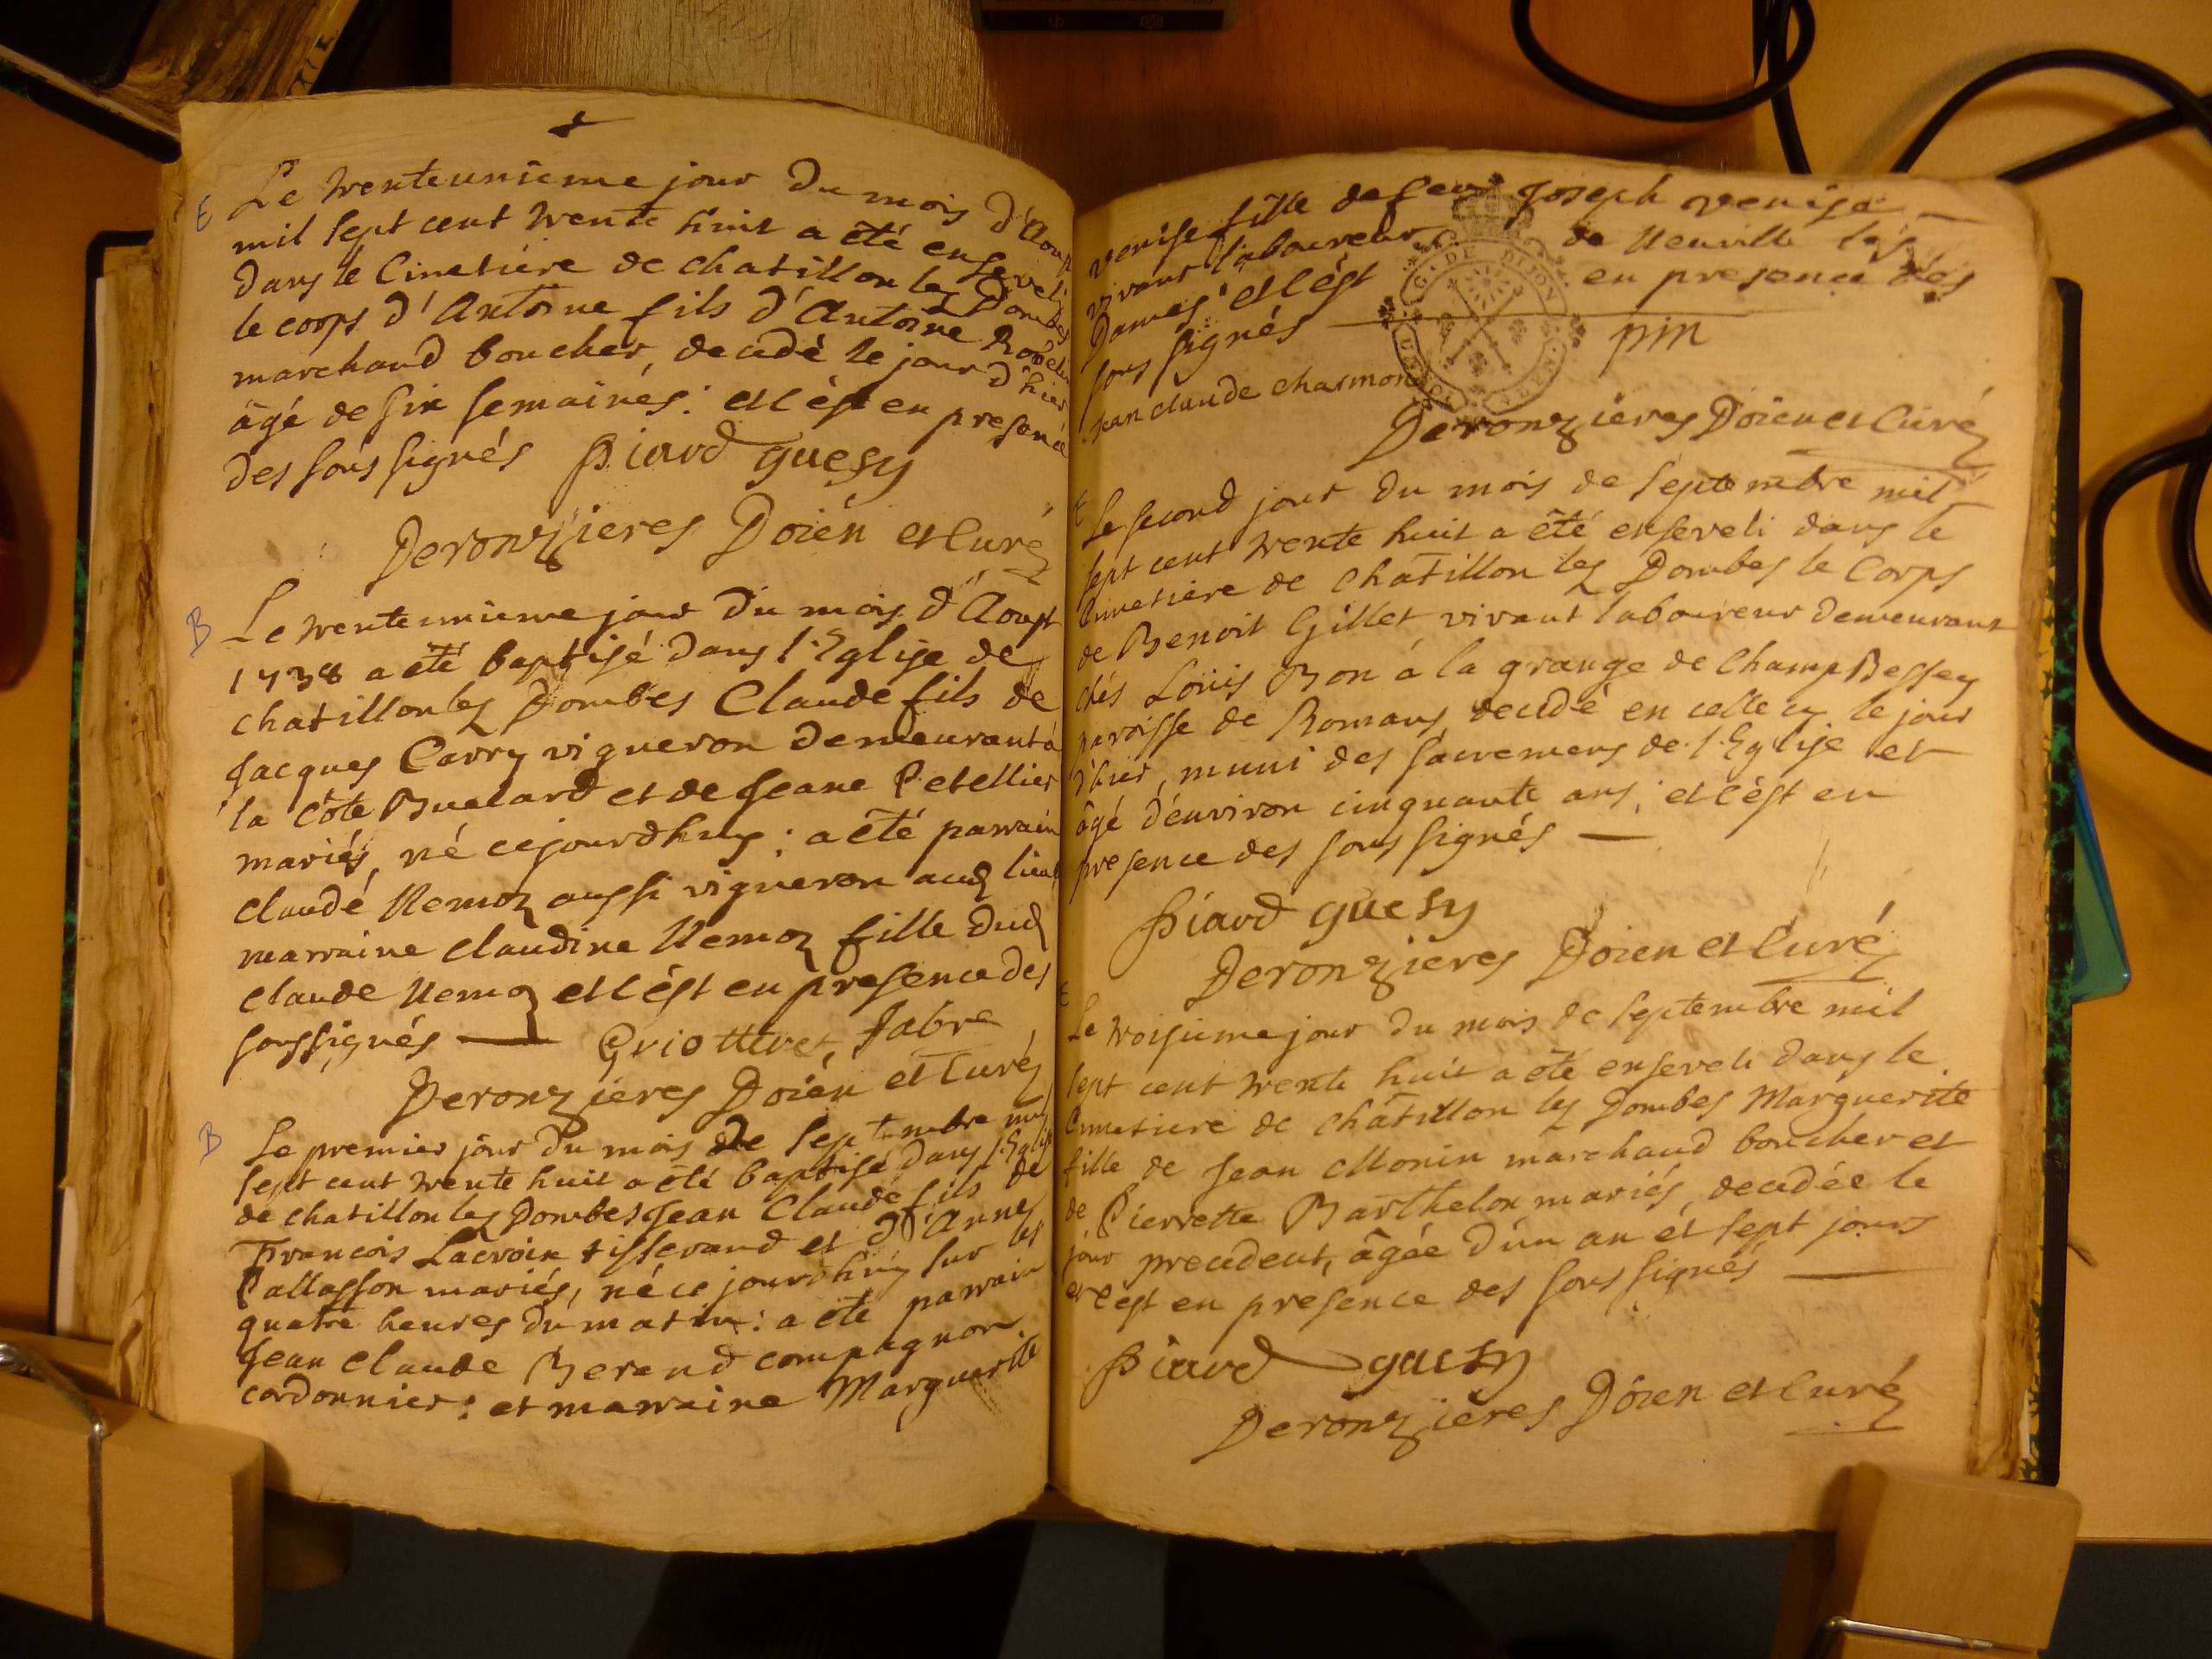 E
Le trenteunieme jour du mois d'Aoust
mil sept cent trente huit a été enseveli
dans le Cimetière de chatillon les Dombes
le corps d'Antoine fils d'Antoine
marchand boucher, decedé le jour d'hier
âgé de six semaines: et c'est en presence
des sous signés Piard guesy
Deronzieres Doien et Curé
B
Le trenteunieme jour du mois d'Aoust
1738 a été baptisé dans l'Eglise de
chatillon les Dombes Claude fils de
Jacques Carry vigneron demeurant a
la côte Bualard et de Jeane Petellier
mariés, né cejourdhuy: a été parrain
claude Nemoz aussi vigneron aud lieu
marraine claudine Nemoz fille dud
claude Nemoz et c'est en presence des
soussignés — Griottier, Fabre
Deronzieres Doien et Curé
B
Le premier jour du mois de Septembre mil
sept cent trente huit a été baptisé dans l'Eglise
de chatillon les Dombes Jean Claude fils de
Francois Lacroix tisserand et d'Anne
Pallasson mariés, né ce jourdhuy sur les
quatre heures du matin: a été parrain
Jean claude Berend compagnon
cordonnier: et marraine Marguerite
venise fille de feu Joseph venise
vivant laboureur de Neuville les
Dames et c'est en presence des
sous signés — pin
Jean claude charmond
G. DE DIJON
Deronzieres Doien et Curé
E
Le second jour du mois de Septembre mil
sept cent trente huit a été enseveli dans le
Cimetiere de chatillon les Dombes le Corps
de Benoit Gillet vivant laboureur demeurant
chés Louis Bon á la grange de Champ Bessey
paroisse de Romans decedé en celle cy le jour
d'hier, muni des sacremens de l'Eglise et
âgé d'environ cinquante ans; et c'est en
presence des sous signés —
Piard guesy
Deronzieres Doien et Curé
E
Le troisieme jour du mois de Septembre mil
sept cent trente huit a été enseveli dans le
Cimetiere de chatillon les Dombes Marguerite
fille de Jean Monin marchand boucher et
de Pierrette Barthelon mariés, decedée le
jour precedent, âgée d'un an et sept jours
et c'est en presence des sous signés —
Piard guesy
Deronzières Doien et Curé